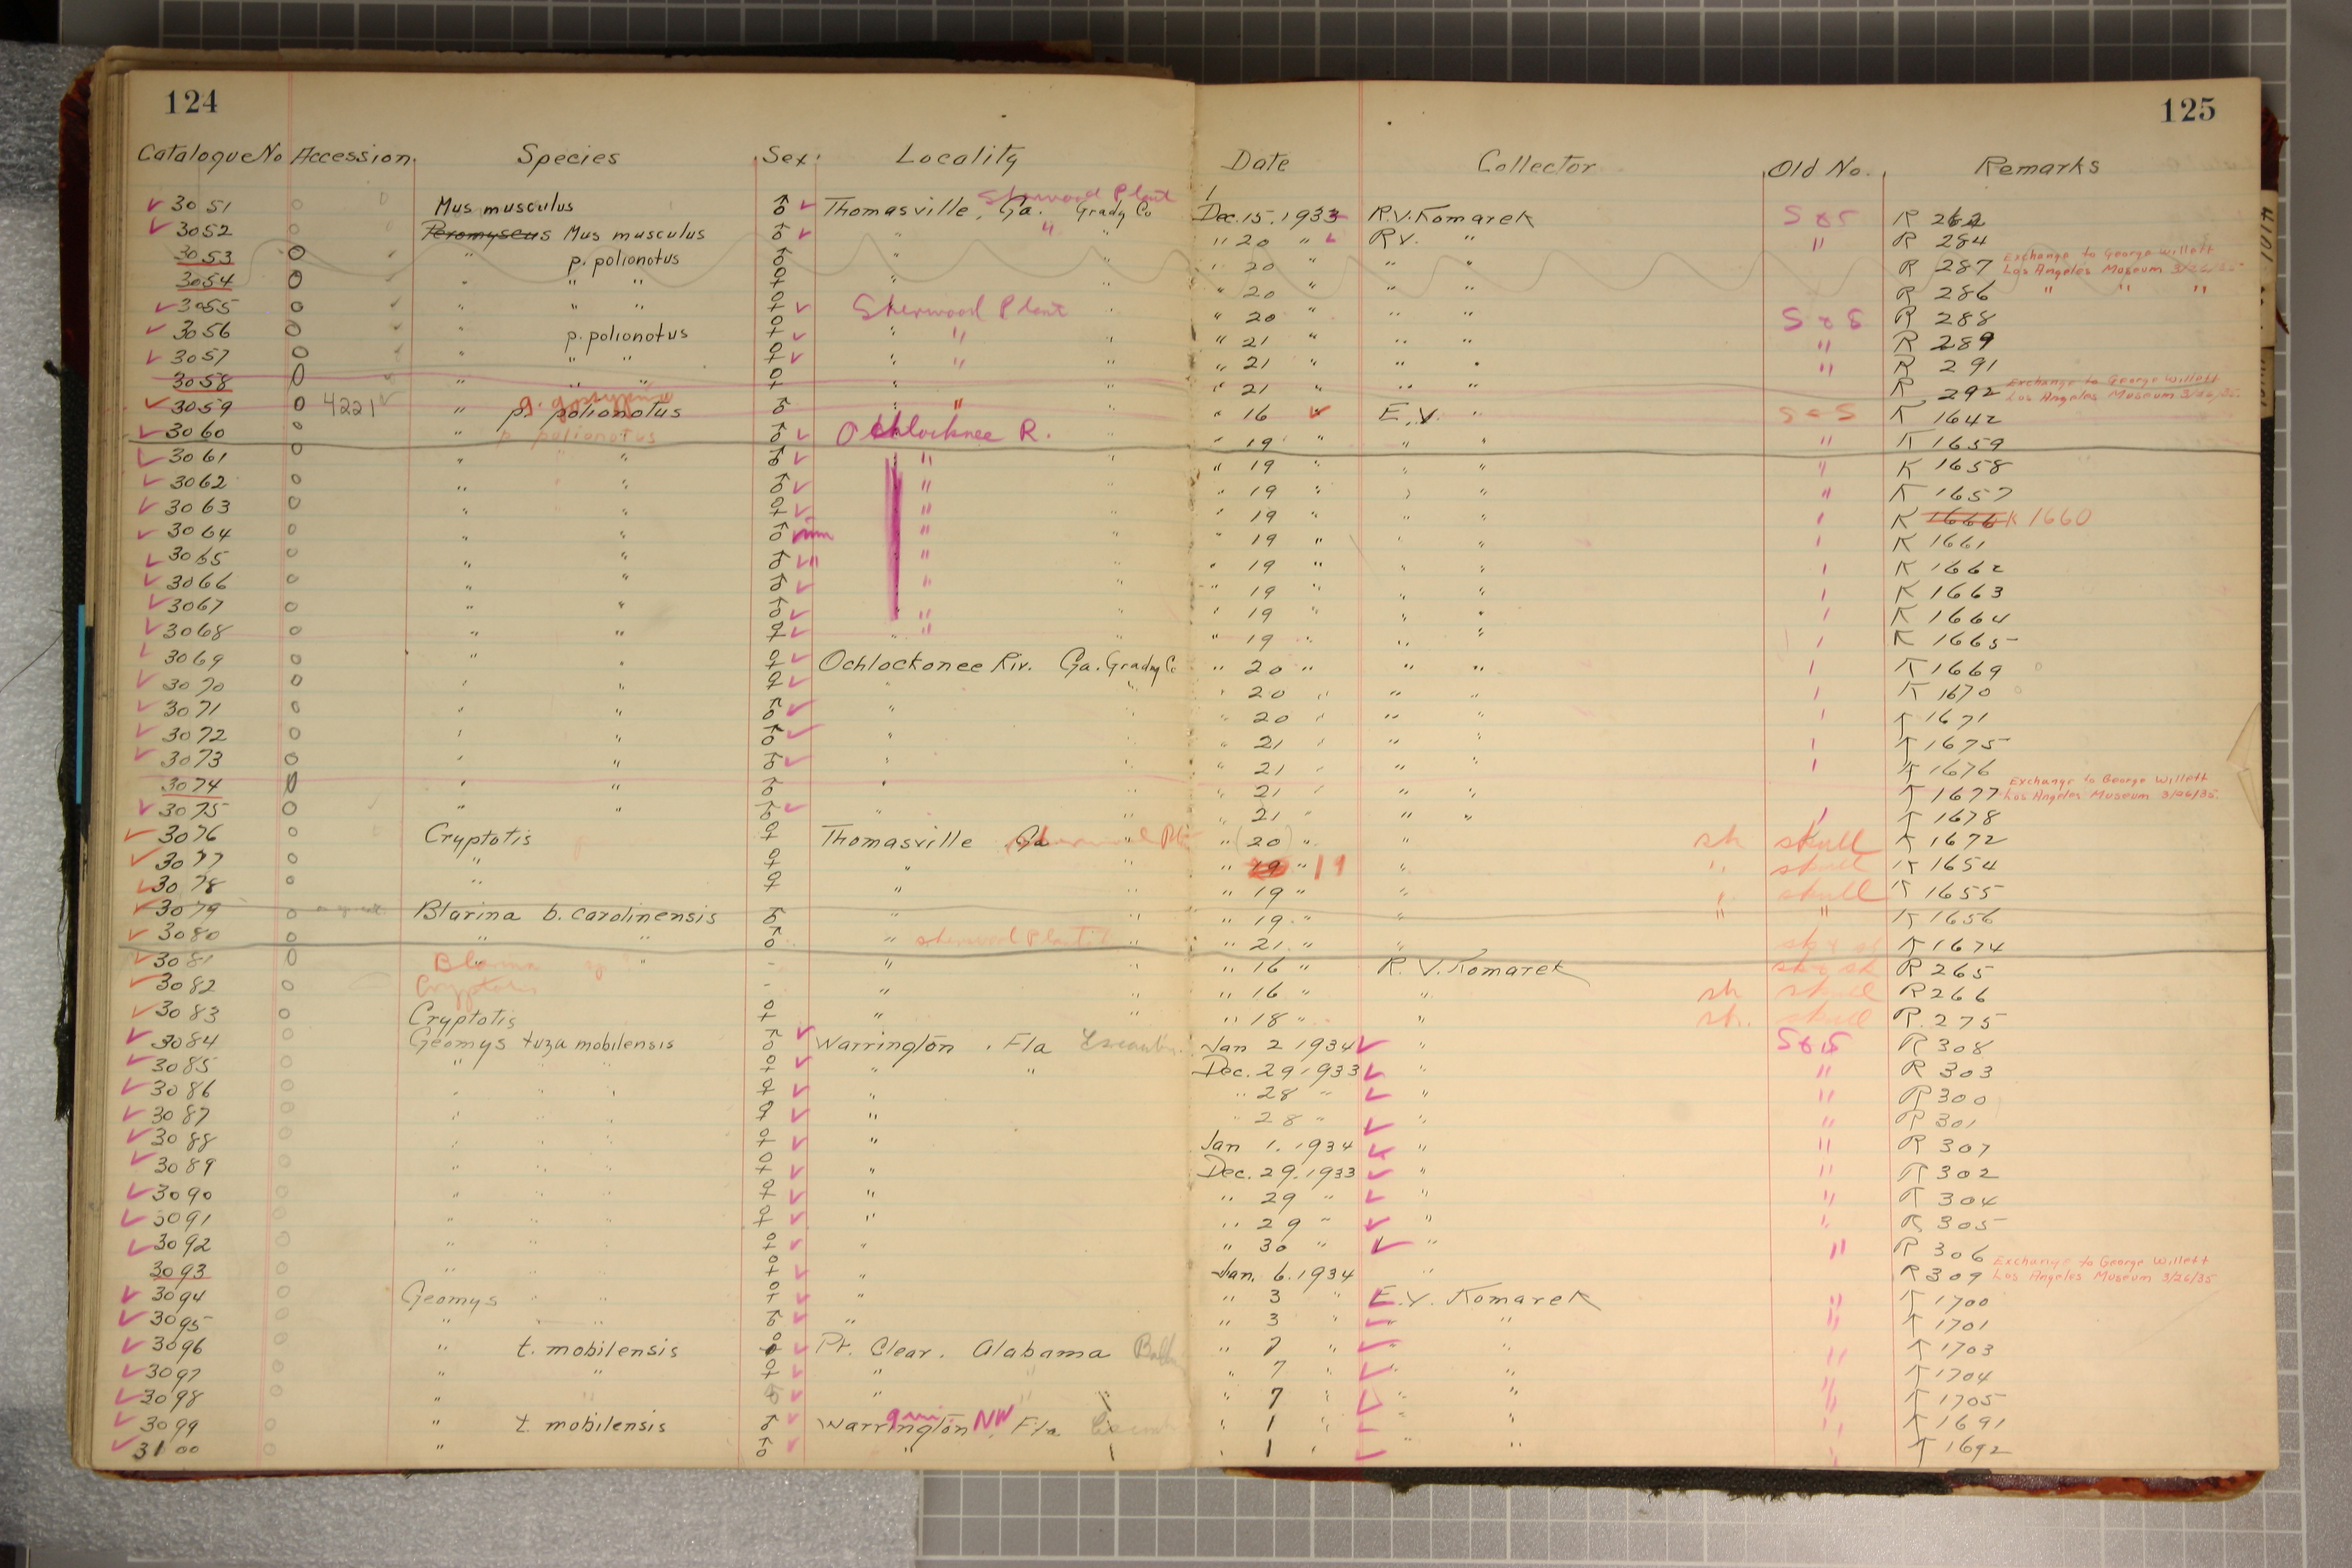 124 125
Catalogue No Accession Species Sex Locality Date Collector Old No. Remarks
3051 Mus musculus ♂ Thomasville, Ga. Sherwood Plant Grady Co Dec. 15, 1933 R.V. Komarek S & S R 262
3052 Peromyscus Mus musculus ♂ " " " " 20 " R.V. " " R 284
3053 " p. polionotus ♂ " " " 20 " " " R 287 Exchange to George Willett Los Angeles Museum 3/26/35
3054 " " " ♀ " " " 20 " " " R 286 " " "
3055 " " " ♀ Sherwood Plant " " 20 " " " S & S R 288
3056 " p. polionotus ♀ " " " " 21 " " " " R 289
3057 " " " ♀ " " " " 21 " " " " R 291
3058 " " " ♀ " " " 21 " " " R 292 Exchange to George Willett Los Angeles Museum 3/26/35
3059 4221 " p. polionotus ♂ " " " " 16 E.V. " S & S K 1642
3060 " p. polionotus ♂ Ochlocknee R. " " 19 " " " " K 1659
3061 " " ♂ " " " 19 " " " " K 1658
3062 " " ♂ " " " 19 " " " " K 1657
3063 " " ♀ " " " 19 " " " K 1666 K 1660
3064 " " ♂ im " " " 19 " " " K 1661
3065 " " ♂ " " " 19 " " " K 1662
3066 " " ♂ " " " 19 " " " K 1663
3067 " " ♂ " " " 19 " " " K 1664
3068 " " ♀ " " " 19 " " " K 1665
3069 " " ♀ Ochlockonee Riv. Ga. Grady Co " 20 " " " K 1669
3070 " " ♀ " " " 20 " " " K 1670
3071 " " ♂ " " " 20 " " " K 1671
3072 " " ♂ " " " 21 " " " K 1675
3073 " " ♂ " " " 21 " " " K 1676
3074 " " ♂ " " " 21 " " " K 1677 Exchange to George Willett Los Angeles Museum 3/26/35.
3075 " " ♂ " " " 21 " " " K 1678
3076 Cryptotis ♀ Thomasville Ga " " (20) " " sk skull K 1672
3077 " ♀ " " " 19 " 19 " " skull K 1654
3078 " ♀ " " " 19 " " " skull K 1655
3079 Blarina b. carolinensis ♂ " " " 19 " " " " K 1656
3080 " " ♂ " Sherwood Plant " " 21 " " K 1674
3081 Blarina " " - " " 16 " R. V. Komarek R 265
3082 Cryptotis - " " " 16 " " sk skull R 266
3083 Cryptotis ♀ " " " 18 " " sk. skull R. 275
3084 Geomys tuza mobilensis ♂ Warrington, Fla Jan 2 1934 " S & S R 308
3085 " " " ♀ " " Dec. 29, 1933 " " R 303
3086 " " " ♀ " " 28 " " " R 300
3087 " " " ♀ " " 28 " " " R 301
3088 " " " ♀ " Jan 1. 1934 " " R 307
3089 " " " ♀ " Dec. 29. 1933 " " R 302
3090 " " " ♀ " " 29 " " " R 304
3091 " " " ♀ " " 29 " " " R 305
3092 " " " ♀ " " 30 " " " R 306
3093 " " " ♀ " Jan. 6. 1934 " R 309 Exchange to George Willett Los Angeles Museum 3/26/35
3094 Geomys " " ♀ " " 3 " E. V. Komarek " K 1700
3095 " " " ♂ " " 3 " " " " K 1701
3096 " t. mobilensis Pt. Clear. Alabama " 7 " " " " K 1703
3097 " " ♀ " " " 7 " " " " K 1704
3098 " " " " " 7 " " " " K 1705
3099 " t. mobilensis ♂ Warrington, 9 mi NW Fla " 1 " " " " K 1691
3100 " ♂ " " 1 " " " " K 1692